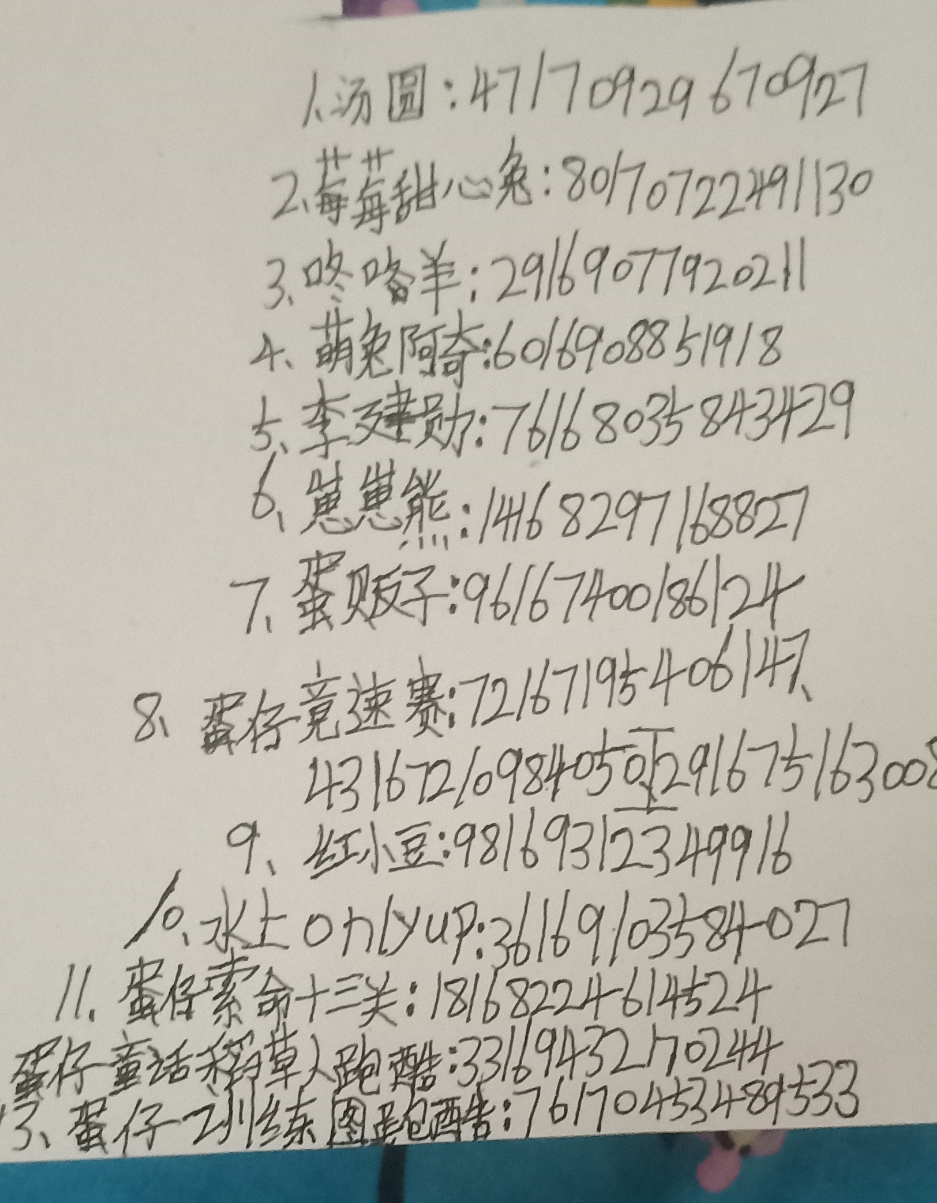 1、汤圆:47170929670927
2、莓莓甜心兔:80170722491130
3、咚咯羊:29169077920211
4、萌兔阿奇:6016908851918
5、李建勋:76168035843429
6、崽崽熊:14168297168827
7、蛋贩子:96167400186124
8、蛋仔竞速赛:72167195406147、
43167210984050 291675163008
9、红小豆:98169312349916
10、水上only up:36169103584027
11、蛋仔索命十三关:18168224614524
蛋仔童话稻草人跑酷:33169432170244
13、蛋仔训练图跑酷:76170453489533